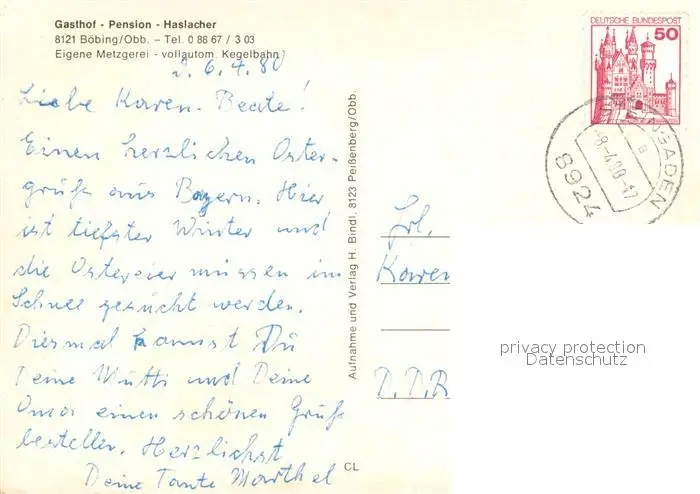 Gasthof - Pension - Haslacher
8121 Böbing/Obb. - Tel. 0 88 67 / 3 03
Eigene Metzgerei - vollautom. Kegelbahn
6.4.80
Liebe Karen-Beate!
Einen herzlichen Oster-
grüße aus Bayern. Hier
ist tiefster Winter und
die Ostereier müssen im
Schnee gesucht werden.
Diesmal kannst Du
Deine Mutti und Deine
Oma einen schönen Gruß
bestellen. Herzlichst
Deine Tante Marthel
CL
Aufnahme und Verlag H. Bindl, 8123 Peißenberg/Obb.
DEUTSCHE BUNDESPOST
50
8924
-8.-4.80-17
a
GADEN
Frl.
Karen
D.D.R
privacy protection
Datenschutz